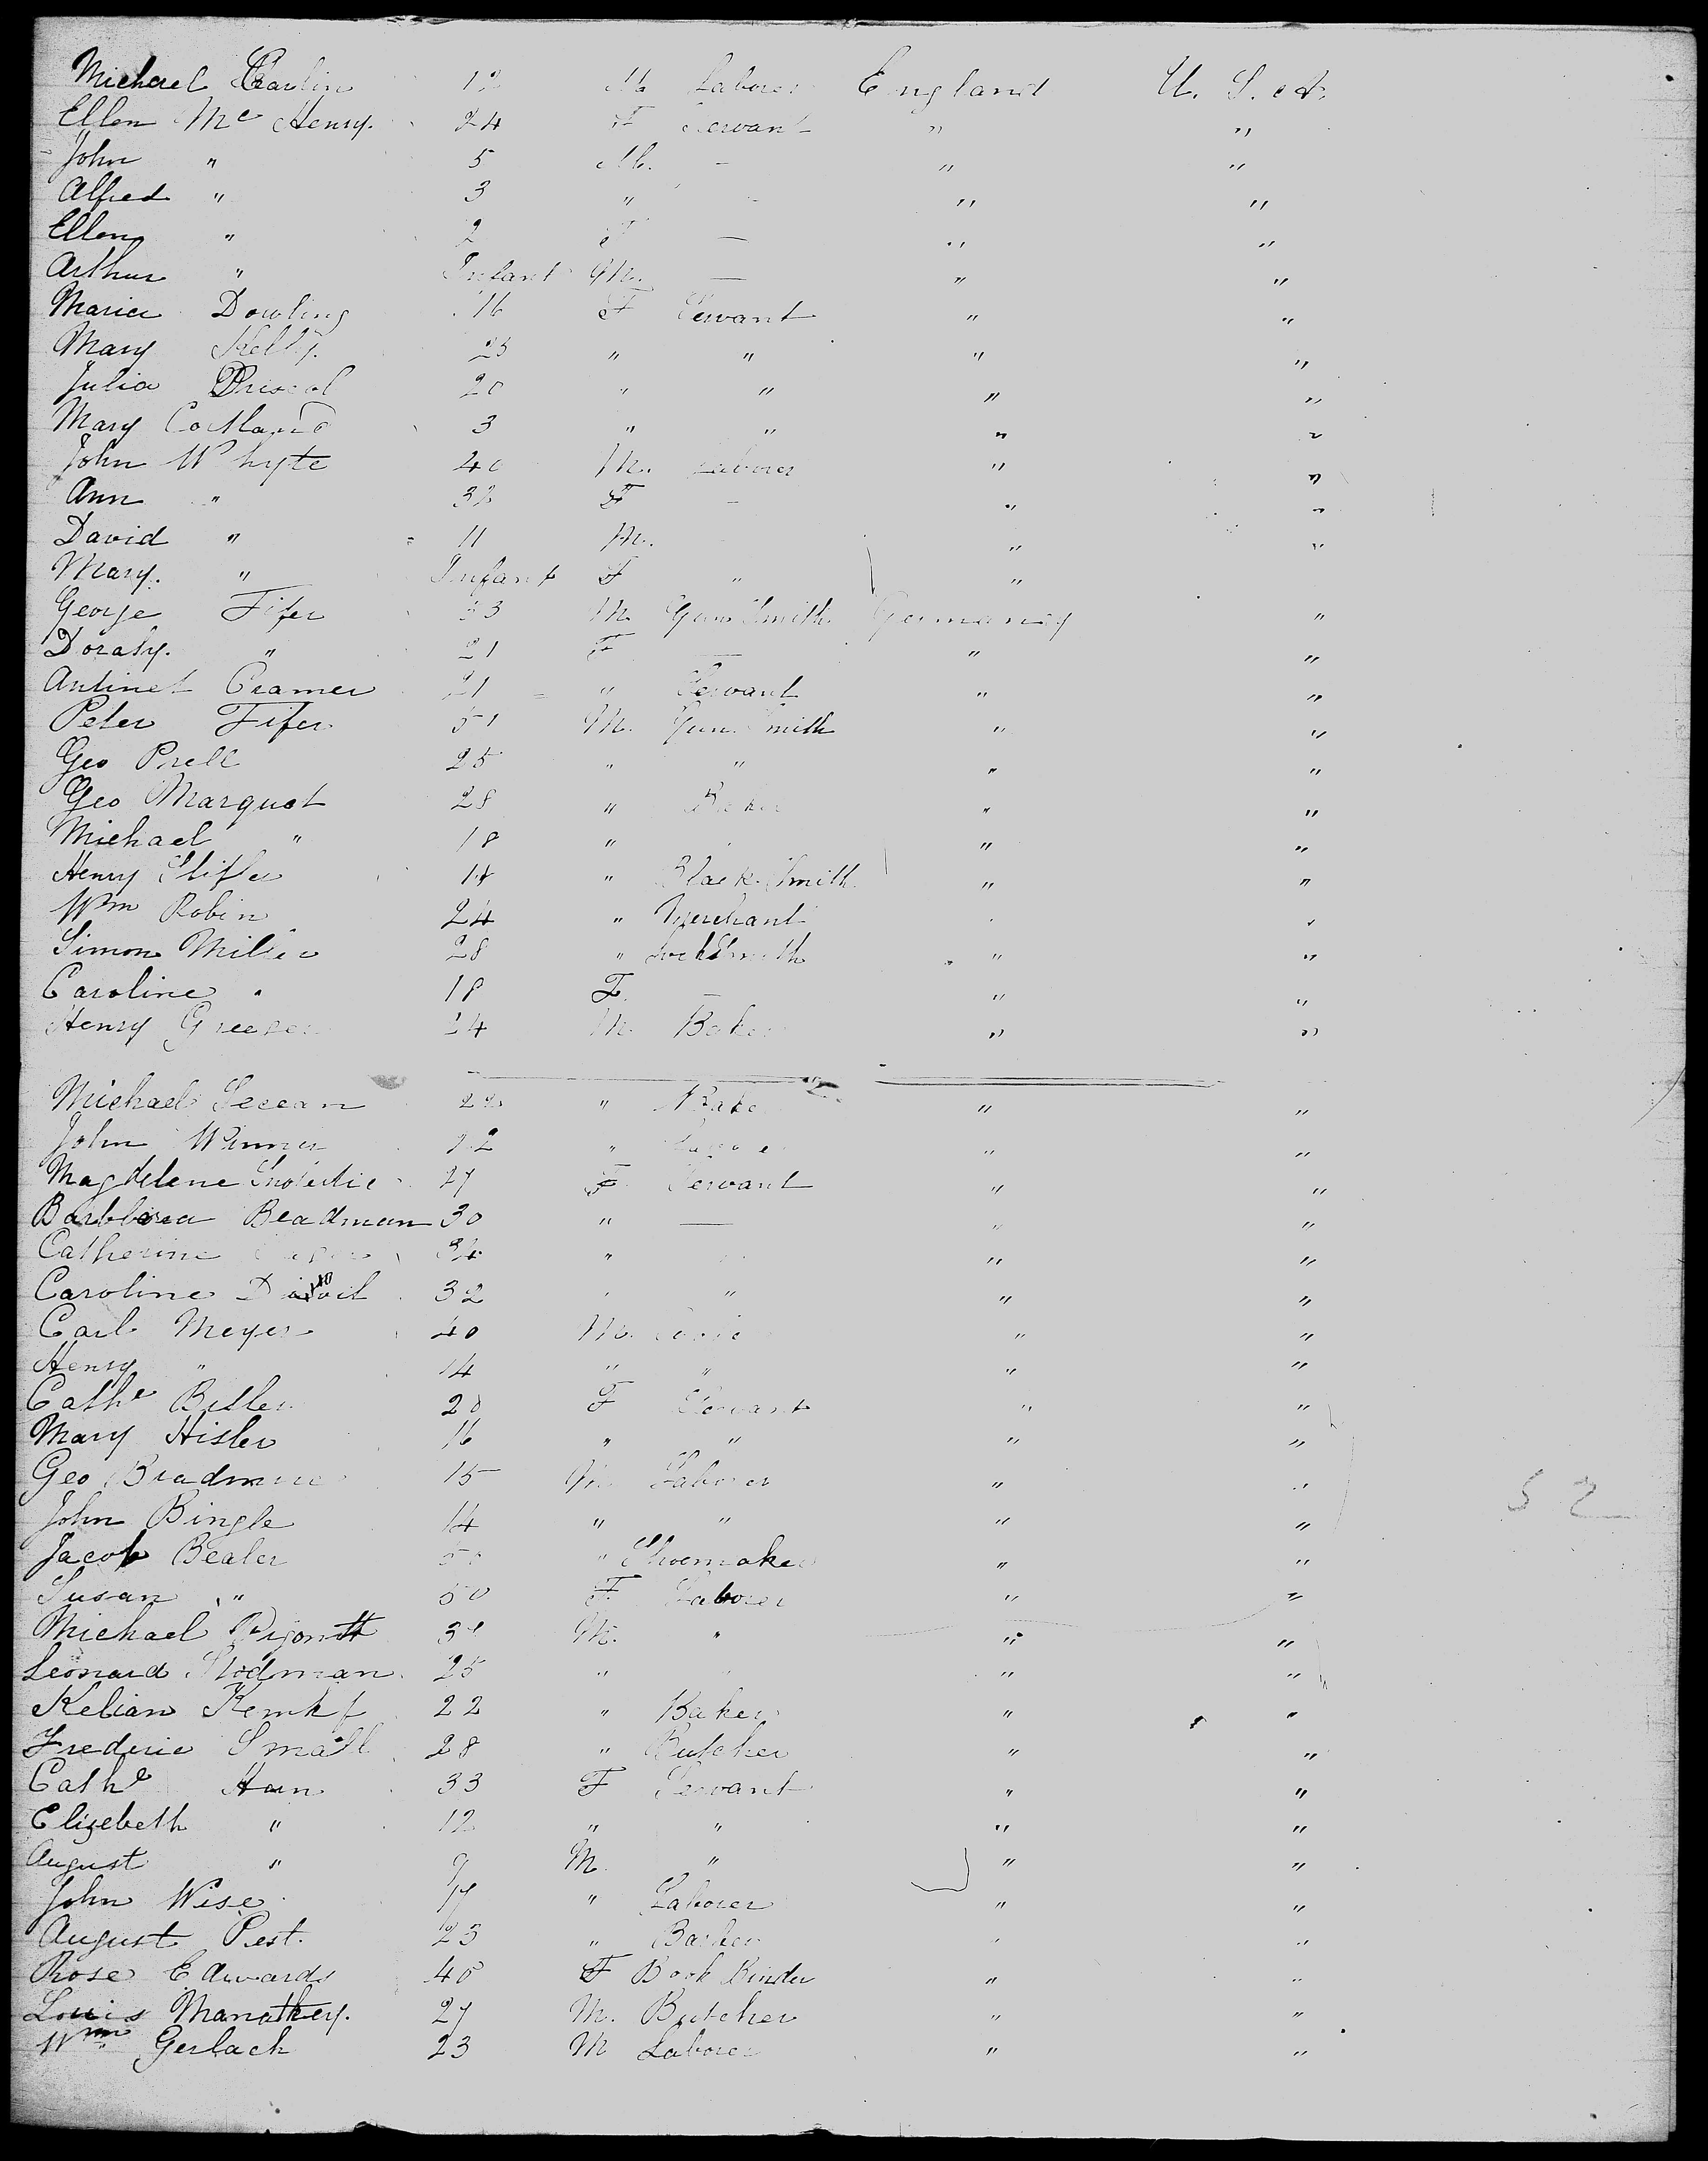 Michael Carlin 12 M. Laborer England U. S. A.
Ellen Mc Henry. 24 F Servant " "
John " 5 M. - " "
Alfred " 3 " - " "
Ellen " 2 F — " "
Arthur " Infant M. — " "
Maria Dowling 16 F Servant " "
Mary Kelly. 23 " " " "
Julia Driscol 20 " " " "
Mary Cortland 3 " " " "
John Whyte 40 M. Laborer " "
Ann " 32 F - " "
David " 11 M. " "
Mary. " Infant F " "
George Fifer 33 M. Gun Smith Germaney "
Doraty. " 21 F — " "
Antinet Cramer 21 " Servant " "
Peter Fifer 51 M. Gun Smith " "
Geo Prell 25 " " " "
Geo Marquot 28 " Baker " "
Michael " 18 " " "
Henry 14 " Black Smith " "
Wm Robin 24 " Merchant " "
Simon Miller 28 " Lock Smith " "
Caroline " 18 F. — " "
Henry Greeser 24 M. Baker " "
Michael 22 " Baker " "
John Winner 22 " " "
Magdelene 27 F Servant " "
Barbbrea Beadman 30 " — " "
Catherine 34 " " "
Caroline 32 " " " "
Carl Meyer 40 M. " "
Henry " 14 " " " "
Cathe Butler 20 F Servant " "
Mary Hisler 16 " " " "
Geo 15 M. Laborer " "
John Bingle 14 " " " "
Jacob Bealer 50 " Shoemaker " "
Susan " 50 F Laborer " "
Michael M. " " "
Leonard Stodman 25 " " "
Kelian Kemkf 22 " Baker " "
Frederic Small 28 " Butcher " "
Cathe Han 33 F Servant " "
Elizebeth " 12 " " " "
August " 9 M. " " "
John Wise 17 " Laborer " "
August Pest. 23 " " "
Rose Edwards 40 F Book Binder " "
Louis Manothey. 27 M. Butcher " "
Wm Gerlach 23 M Laborer " "
52